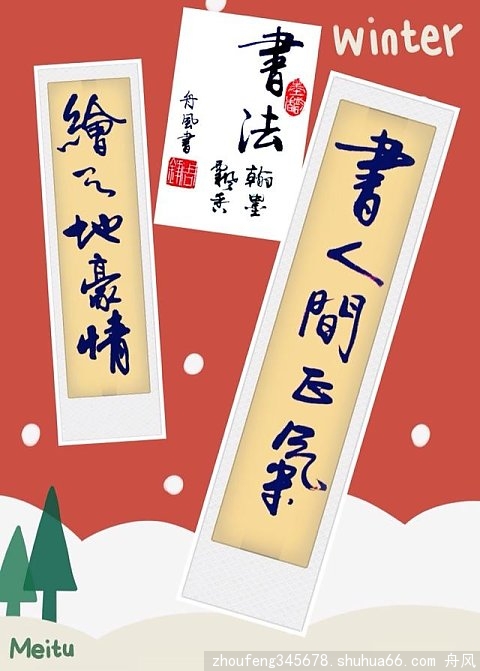 winter
書法
翰墨
飄香
舟風書
書人間正氣
繪天地豪情
Meitu
zhoufeng345678.shuhua66.com 舟风